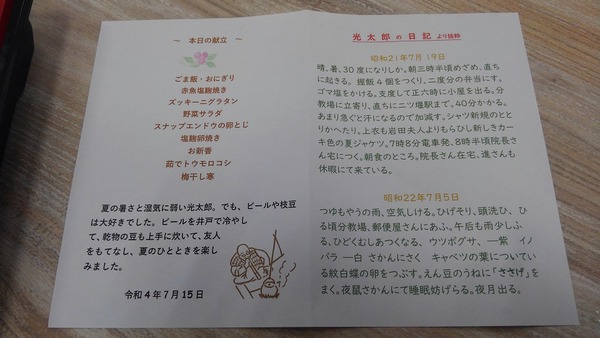 ～ 本日の献立 ～
ごま飯・おにぎり
赤魚塩麹焼き
ズッキーニグラタン
野菜サラダ
スナップエンドウの卵とじ
塩麹卵焼き
お新香
茹でトウモロコシ
梅干し寒
夏の暑さと湿気に弱い光太郎。でも、ビールや枝豆
は大好きでした。ビールを井戸で冷やし
て、乾物の豆も上手に炊いて、友人
をもてなし、夏のひとときを楽し
みました。
令和４年７月１５日
光太郎の日記より抜粋
昭和21年7月19日
晴、暑、30度になりしか。朝三時半頃めざめ、直ち
に起きる。握飯4個をつくり、二度分の弁当にす。
ゴマ塩をかける。支度して正六時に小屋を出る。分
教場に立寄り、直ちに二ツ堰駅まで。40分かかる。
あまり急ぐと汗になるので加減す。シャツ新規のとと
りかへたり。上衣も岩田夫人よりもらひし新しきカー
キ色の夏ジャケツ。7時8分電車発、8時半頃院長さ
ん宅につく。朝食のところ。院長さん在宅、進さんも
休暇にて来ている。
昭和22年7月5日
つゆもやうの雨、空気しける。ひげそり、頭洗ひ、ひ
る頃分教場、郵便屋さんにあふ。午后も雨少しふ
る、ひどくむしあつくなる、 ウツボグサ、―紫 イノ
バラ ―白 さかんにさく キャベツの葉についてい
た紋白蝶の卵をつぶす。えん豆のうねに「ささげ」を
まく。夜鼠さかんにて睡眠妨げらる。夜月出る。